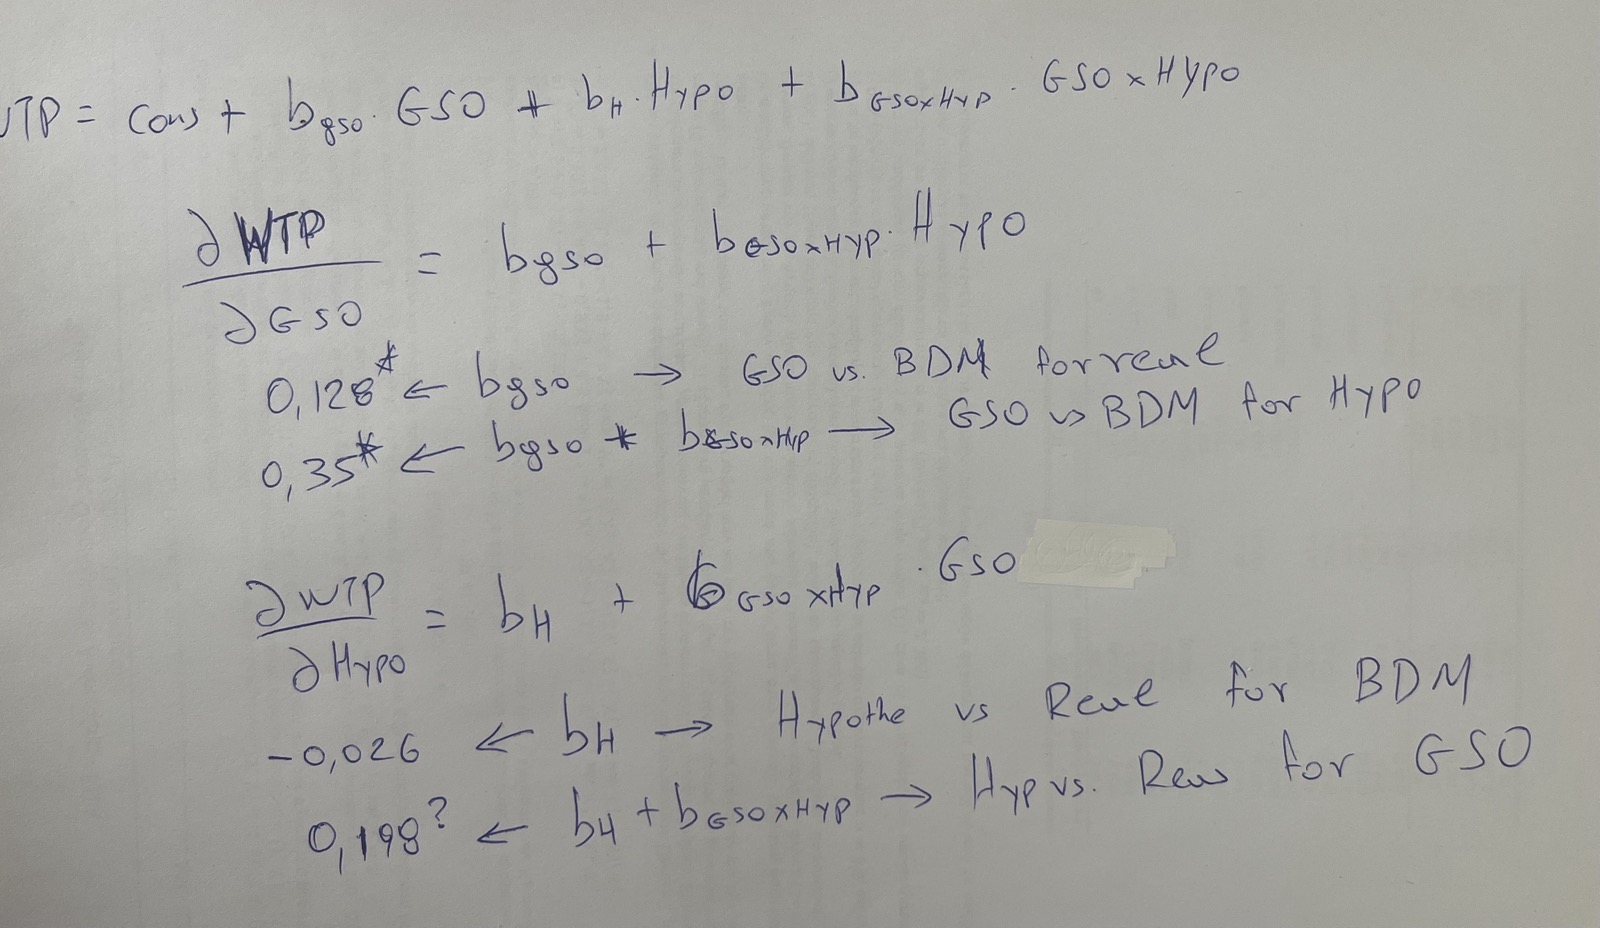 WTP = Cons + bgso · GSO + bH · Hypo + bGSOxHyp · GSO x Hypo
∂WTP
= bgso + bGSOxHyp · Hypo
∂GSO
0,128* ← bgso → GSO vs. BDM for real
0,35* ← bgso + bGSOxHyp → GSO vs BDM for Hypo
∂WTP
= bH + bGSOxHyp · GSO
∂Hypo
-0,026 ← bH → Hypothe vs Real for BDM
0,198? ← bH + bGSOxHyp → Hyp vs. Rea for GSO